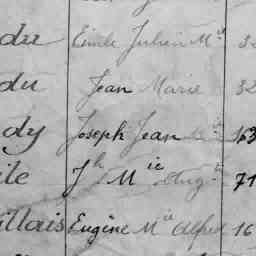 du Emile Julien M^ie 32
du Jean Marie 32
dy Joseph Jean B^te 163
ile J^h M^ie Aug^te 71
illais Eugène M^ie Alfred 16